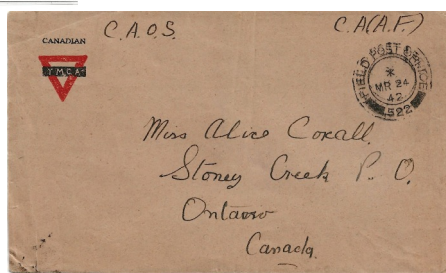 C.A.O.S.
C.A.(A.F.)
CANADIAN
YMCA
FIELD POST OFFICE
MR 24
42
522
Miss Alice Coxall.
Stoney Creek P. O.
Ontario
Canada.